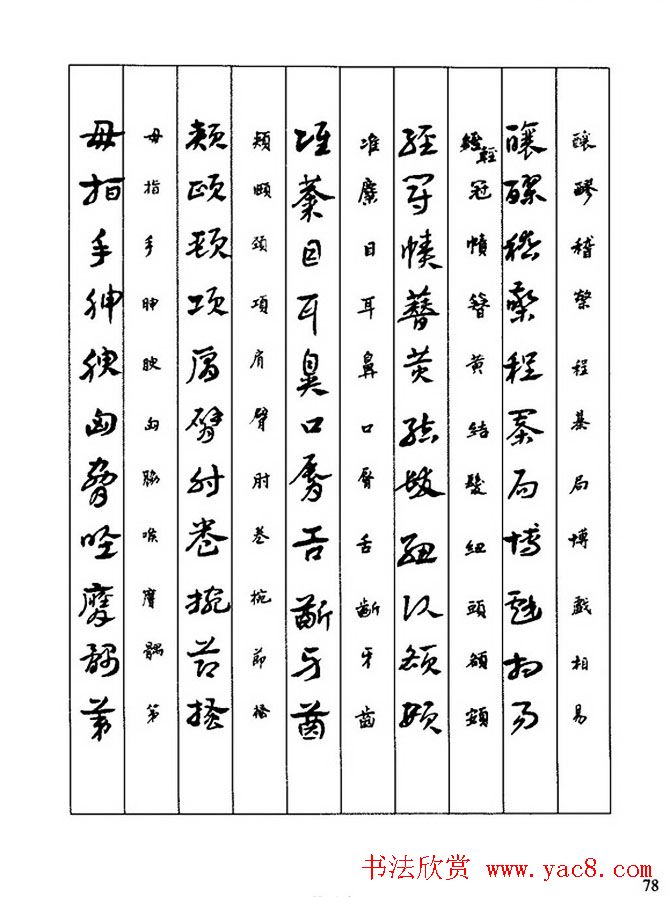 釀醪稽檠程基局博戲相易
釀醪稽檠程基局博戲相易
經輕冠幘簪黃結髮紐頭額頞
經冠幘簪黃結髮紐頭額頞
准麋目耳鼻口脣舌齗牙齒
准麋目耳鼻口脣舌齗牙齒
頰頤頸項肩臂肘卷捥節搔
頰頤頸項肩臂肘卷捥節搔
母指手胂腴匈脇喉膺髃第
母指手胂腴匈脅喉膺髃第
书法欣赏 www.yac8.com
78